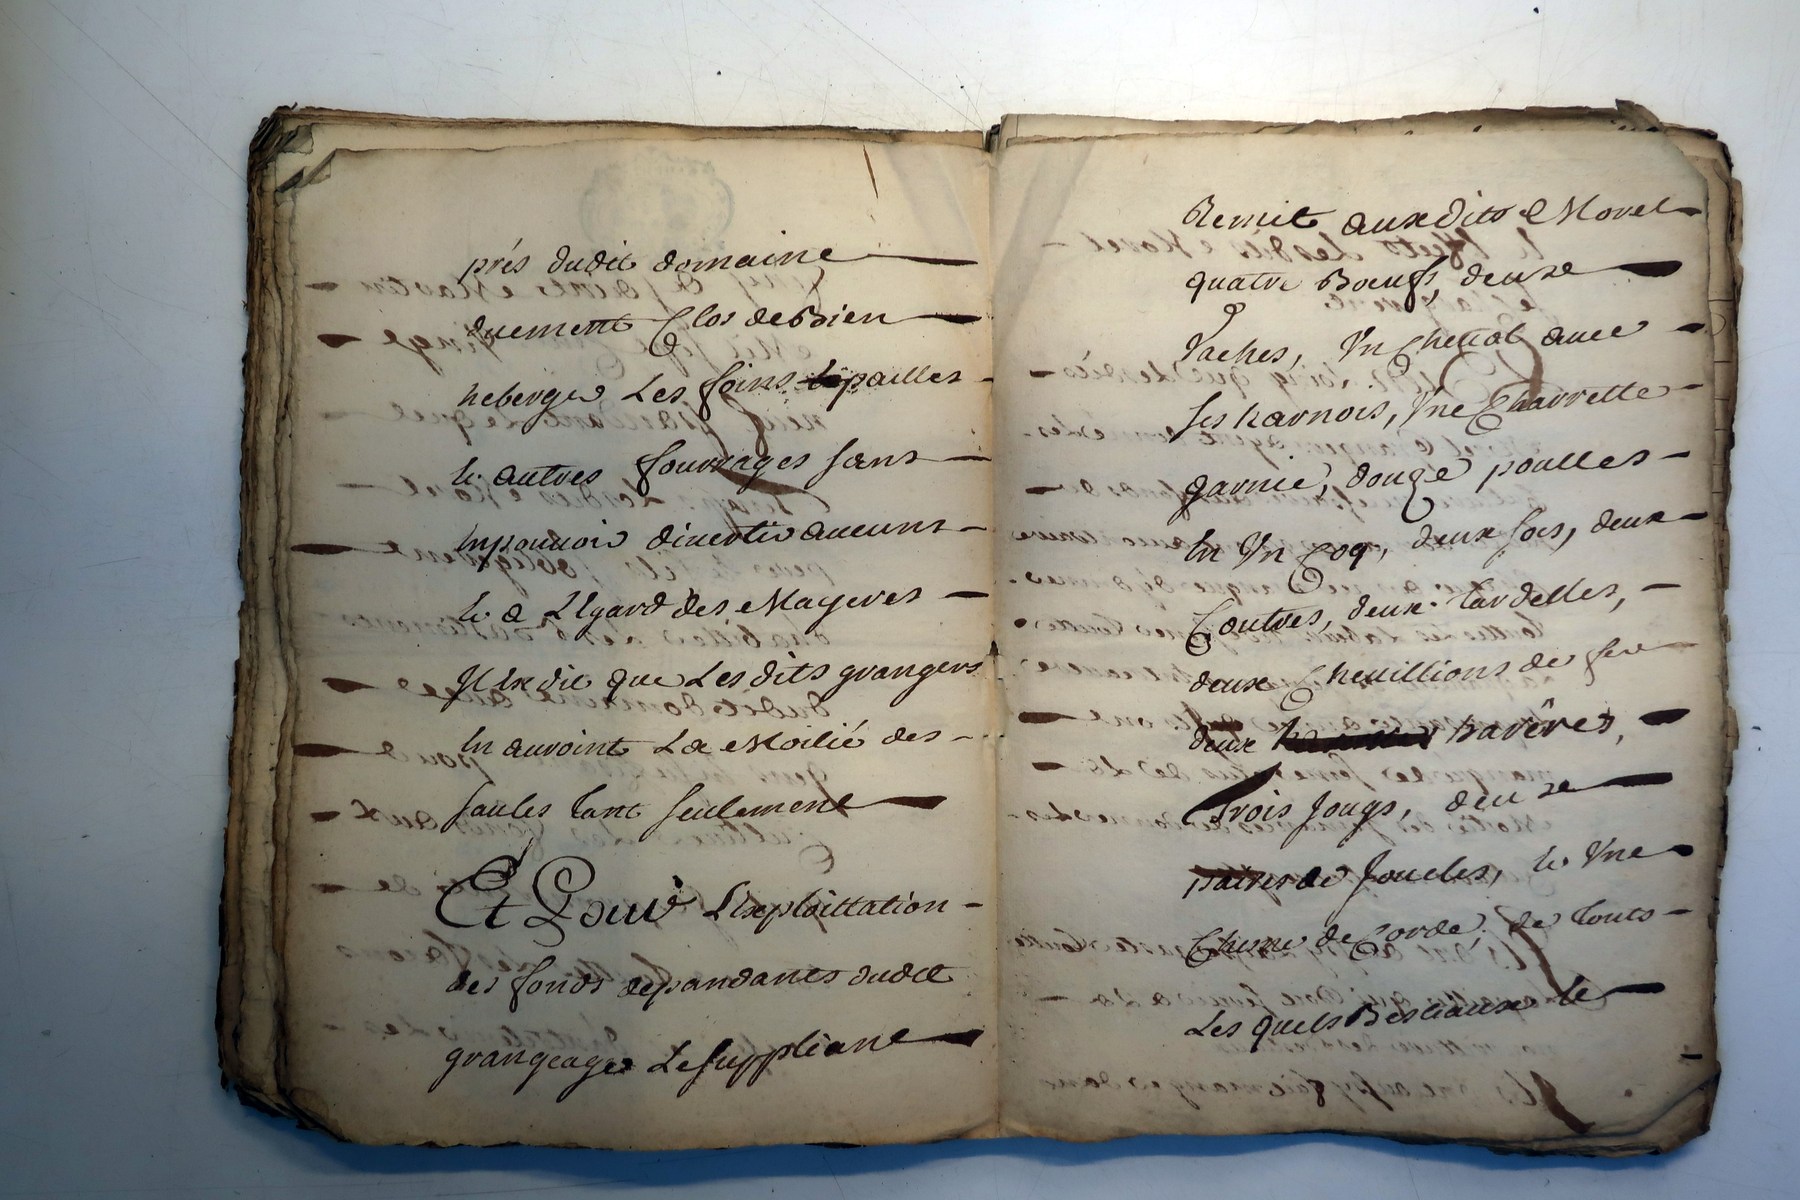 prés dudit domaine
duement Clos de Bien
heberger Les foins pailles
et autres fourrages sans
en pouvoir divertir aucuns
et a L'Egard des Mayeres
Il Est dit que Lesdits grangers
en auroint La Moitié des
saules tant seulement
Et Pour L'Exploittation
des fonds dependants dudit
grangeage Le suppliant
Remit auxdits Morel
quatre Bœufs, deuxe
Vaches, Un Cheval avec
ses harnois, Une Charrette
garnie, douze poulles
et Un Coq, deux socs, deux
Coutres, deux tardelles,
deux Chevillions de fer
deux harêres,
Trois Jougs, deuxe
paires de Joucles, et Une
Chesne de Corde de touts
Les quels Bestiaux et